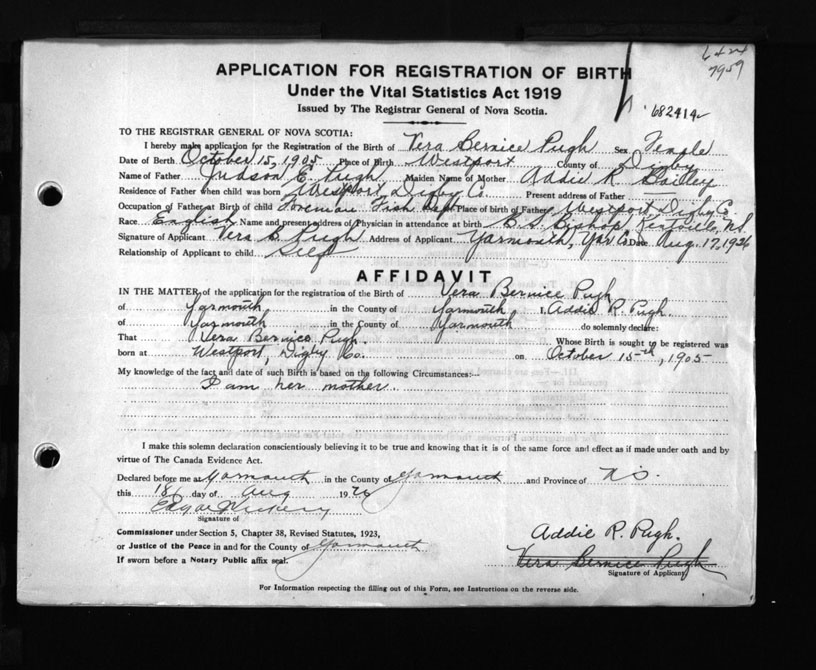 6424
7959
APPLICATION FOR REGISTRATION OF BIRTH
Under the Vital Statistics Act 1919
Issued by The Registrar General of Nova Scotia.
682414
TO THE REGISTRAR GENERAL OF NOVA SCOTIA:
I hereby make application for the Registration of the Birth of Vera Bernice Pugh Sex Female
Date of Birth October 15, 1905 Place of Birth Westport County of Digby
Name of Father Judson E. Pugh Maiden Name of Mother Addie R. Bailey
Residence of Father when child was born Westport, Digby Co. Present address of Father
Occupation of Father at Birth of child Foreman Fish Dept Place of birth of Father Westport Digby Co
Race English Name and present address of Physician in attendance at birth Bishop N.S.
Signature of Applicant Vera B. Pugh Address of Applicant Yarmouth, Yar Co Date Aug. 17, 1926
Relationship of Applicant to child Self
AFFIDAVIT
IN THE MATTER of the application for the registration of the Birth of Vera Bernice Pugh
of Yarmouth in the County of Yarmouth I, Addie R. Pugh.
of Yarmouth in the County of Yarmouth do solemnly declare:
That Vera Bernice Pugh. Whose Birth is sought to be registered was
born at Westport, Digby Co. on October 15th, 1905
My knowledge of the fact and date of such Birth is based on the following Circumstances:—
I am her mother.
I make this solemn declaration conscientiously believing it to be true and knowing that it is of the same force and effect as if made under oath and by
virtue of The Canada Evidence Act.
Declared before me at Yarmouth in the County of Yarmouth and Province of N.S.
this 18 day of Aug 1926
Edgar
Signature of
Commissioner under Section 5, Chapter 38, Revised Statutes, 1923,
or Justice of the Peace in and for the County of Yarmouth
If sworn before a Notary Public affix seal.
Addie R. Pugh.
Vera Bernice Pugh
Signature of Applicant
For Information respecting the filling out of this Form, see Instructions on the reverse side.